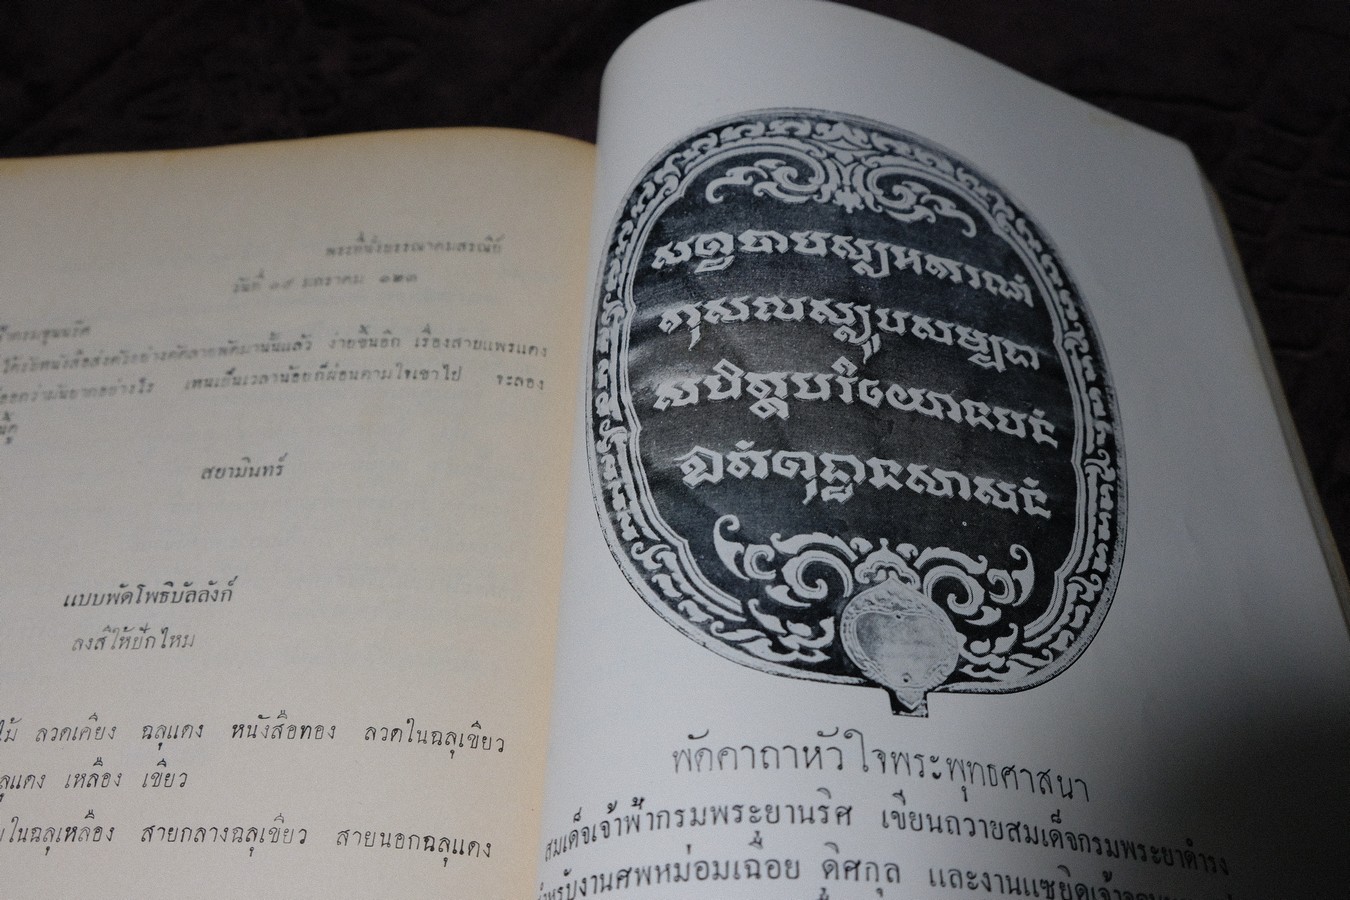 พระที่นั่งบรรณาคมสรณีย์
วันที่ ๑๙ มกราคม ๑๒๓
ได้รับหนังสือส่งตัวอย่างคติลายพัดมานั้นแล้ว ง่ายขึ้นอีก เรื่องสายแพรแดง
เห็นเป็นเวลาน้อยก็ผ่อนตามใจเขาไป จะลอง
สยามินทร์
แบบพัดโพธิบัลลังก์
ลงสีให้ปักไหม
ลวดเคียง ฉลุแดง หนังสือทอง ลวดในฉลุเขียว
เหลือง เขียว
ในฉลุเหลือง สายกลางฉลุเขียว สายนอกฉลุแดง
សព្វបាបស្ស អករណំ
កុសលស្សុបសម្បទា
សចិត្តបរិយោទបនំ
ឯតំ ពុទ្ធានសាសនំ
พัดคาถาหัวใจพระพุทธศาสนา
สมเด็จเจ้าฟ้ากรมพระยานริศ เขียนถวายสมเด็จกรมพระยาดำรง
งานศพหม่อมเฉื่อย ดิศกุล และงานแซยิด